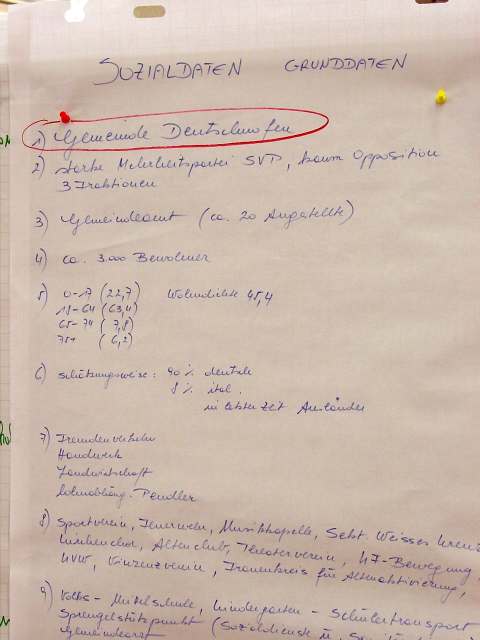 SOZIALDATEN GRUNDDATEN
1) Gemeinde Deutschnofen
2) starke Mehrheitspartei SVP, kaum Opposition
3 Fraktionen
3) Gemeindeamt (ca. 20 Angestellte)
4) ca. 3.000 Bewohner
5) 0-17 (22,7) Wohndichte 45,4
18-64 (63,4)
65-74 (7,8)
75+ (6,2)
6) schätzungsweise: 90 % deutsch
8 % ital.
in letzter Zeit Ausländer
7) Fremdenverkehr
Handwerk
Landwirtschaft
Lohnabhäng. Pendler
8) Sportverein, Feuerwehr, Musikkapelle, Sekt. Weisses Kreuz
Kirchenchor, Altenclub, Theaterverein, 47-Bewegung,
KVW, Vinzenzverein, Frauenkreis für Altenaktivierung,
9) Volks- Mittelschule, Kindergarten - Schülertransport
Sprengelstützpunkt (Sozialdienste
Gemeindearzt